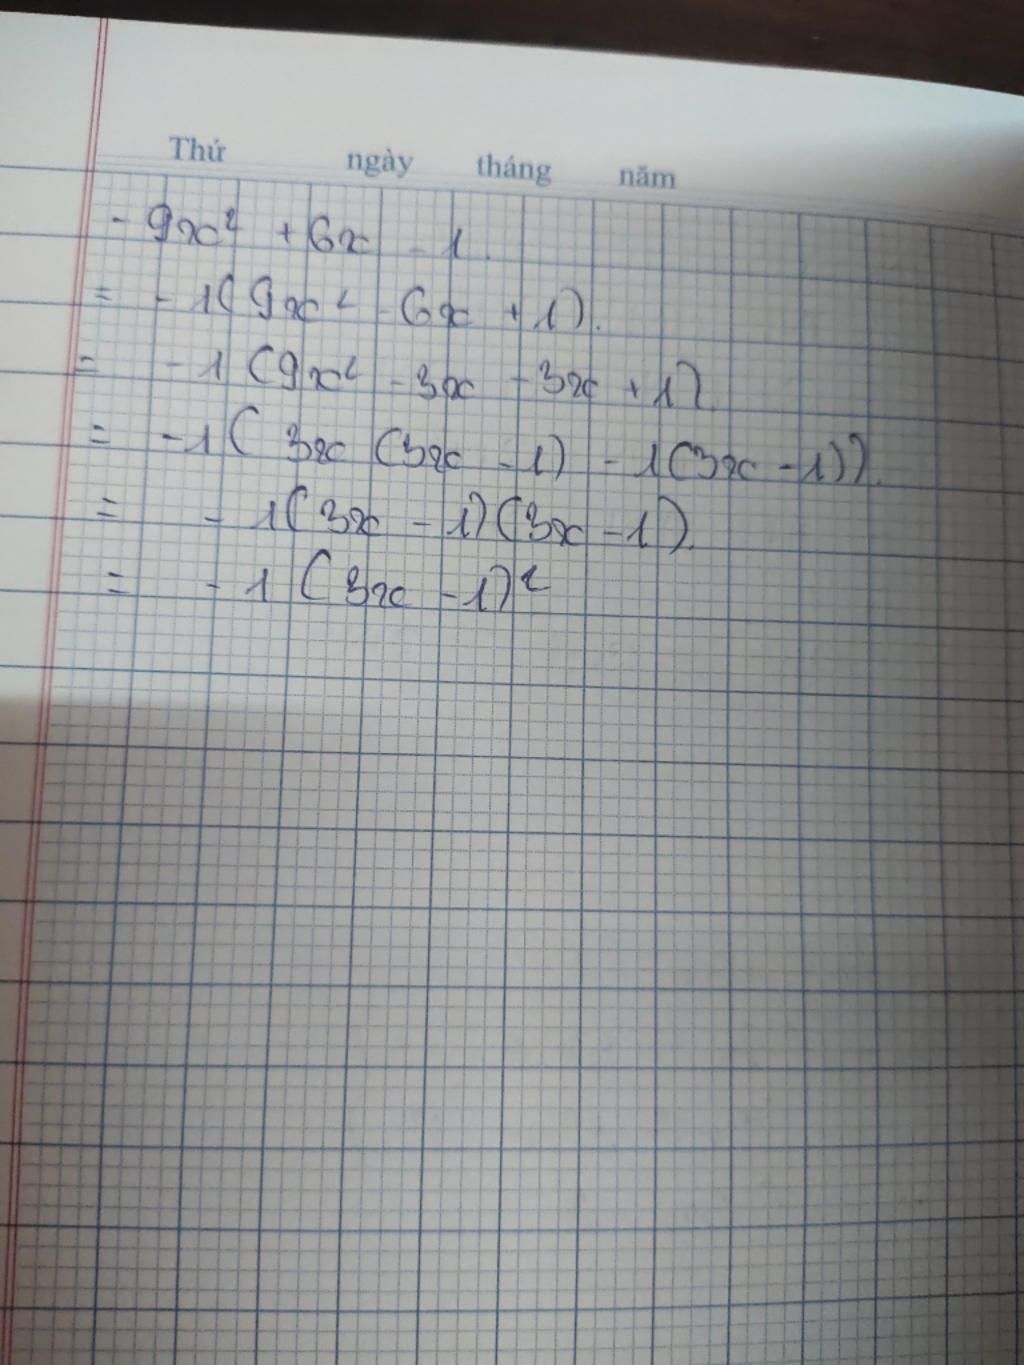 Thứ ngày tháng năm
- 9x² + 6x - 1.
= - 1(9x² - 6x + 1).
= - 1(9x² - 3x - 3x + 1).
= - 1(3x(3x - 1) - 1(3x - 1)).
= - 1(3x - 1)(3x - 1).
= - 1(3x - 1)²